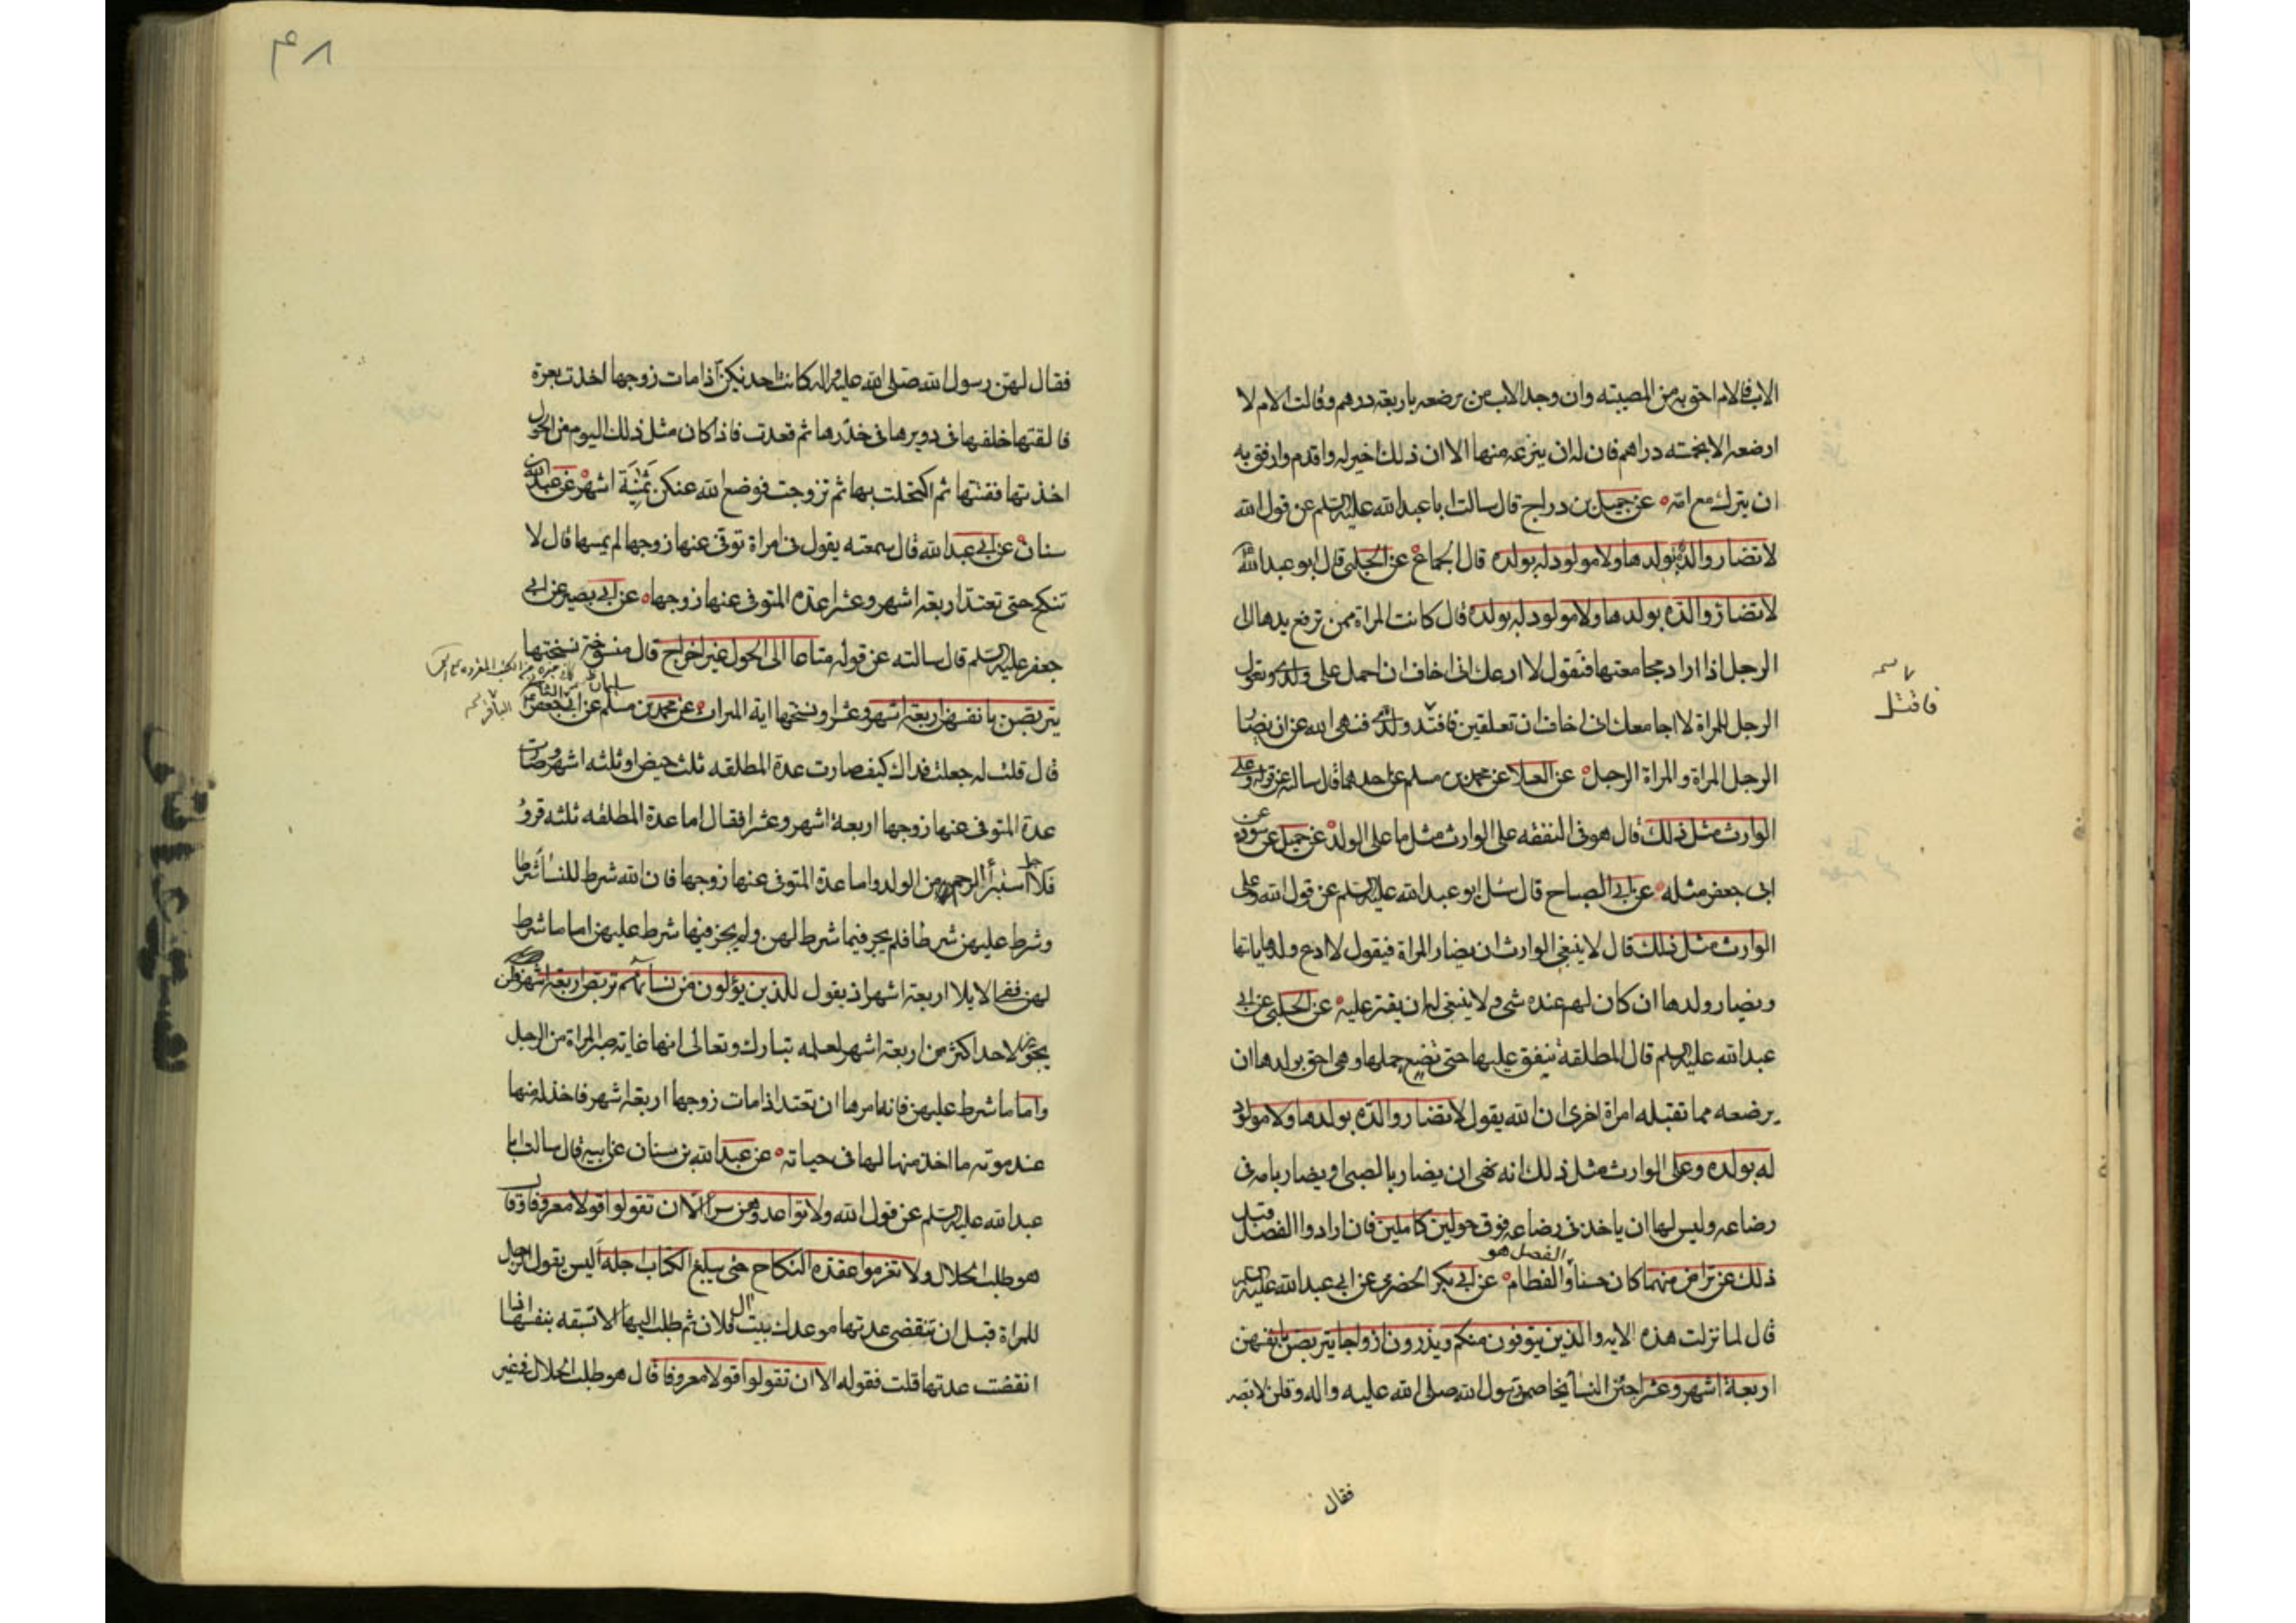 الاب فالام احق به من العصبته وان وجد الاب من يرضعه باربعة دراهم وقالت الام لا
ارضعه الا بخمسه دراهم فان له ان ينزعه منها الا ان ذلك اخير له واقدم وارفق به
ان يترك مع امه عن جميل بن دراج قال سالت ابا عبد الله عليه السلم عن قول الله
لا تضار والدة بولدها ولا مولود له بولده قال الجماع عن الحلبى قال ابو عبد الله
لا تضار والدة بولدها ولا مولود له بولده قال كانت المراة ممن ترفع يدها الى
الرجل اذا اراد مجامعتها فتقول لا ادعك انى اخاف ان احمل على ولدى ويقول
الرجل للمراة لا اجامعك انى اخاف ان تعلقين فاقتل ولدى فنهى الله عن ان يضار
فاقتل
الرجل المراة والمراة الرجل عن العلا عن محمد بن مسلم عن احدهما قال سالته عن قوله وعلى
الوارث مثل ذلك قال هو فى النفقه على الوارث مثل ما على الولد عن جميل عن سورة عن
ابى جعفر مثله عن ابى الصباح قال سئل ابو عبد الله عليه السلم عن قول الله وعلى
الوارث مثل ذلك قال لا ينبغى الوارث ان يضار المراة فيقول لا ادع ولدها ياتها
ويضار ولدها ان كان لهم عنده شى ولا ينبغى له ان يقتر عليه عن الحلبى عن ابى
عبد الله عليه السلم قال المطلقة ينفق عليها حتى تضع حملها وهى احق بولدها ان
يرضعه مما تقبله امراة اخرى ان الله يقول لا تضار والدة بولدها ولا مولود
له بولده وعلى الوارث مثل ذلك انه نهى ان يضار بالصبى او يضار بامه فى
رضاعه وليس لها ان ياخذ فى رضاعه فوق حولين كاملين فان ارادوا الفصل قبل
ذلك عن تراض منهما كان حسنا والفصل هو الفطام عن ابى بكر الحضرمى عن ابى عبد الله عليه السلم
قال لما نزلت هذه الايه والذين يتوفون منكم ويذرون ازواجا يتربصن بانفسهن
اربعة اشهر وعشرا جئن النسآ يخاصمن رسول الله صلى الله عليه واله وقلن لا نصبر
فقال
٩٨
فقال لهن رسول الله صلى الله عليه واله كانت احديكن اذا مات زوجها اخذت بعرة
فالقتها خلفها فى دويرها فى خدرها ثم قعدت فاذا كان مثل ذلك اليوم من الحول
اخذتها ففتتها ثم اكتحلت بها ثم تزوجت فوضع الله عنكن ثمنية اشهر عن عبد الله بن
سنان عن ابى عبد الله قال سمعته يقول فى امراة توفى عنها زوجها لم يمسها قال لا
تنكح حتى تعتد اربعة اشهر وعشرا عدة المتوفى عنها زوجها عن ابى بصير عن ابى
جعفر عليه السلم قال سالته عن قوله متاعا الى الحول غير اخراج قال منسوخة نسختها
يتربصن بانفسهن اربعة اشهر وعشرا ونسختها اية الميراث عن محمد بن مسلم عن ابى جعفر
الباقر
قال قلت له جعلت فداك كيف صارت عدة المطلقه ثلث حيض او ثلثه اشهر وصارت
عدة المتوفى عنها زوجها اربعة اشهر وعشرا فقال اما عدة المطلقه ثلثه قروء
فلاجل استبرأ الرحم من الولد واما عدة المتوفى عنها زوجها فان الله شرط للنسآ شرطا
وشرط عليهن شرطا فلم يجر فيما شرط لهن ولم يجز فيها شرط عليهن اما ما شرط
لهن ففى الايلا اربعة اشهر اذ يقول للذين يؤلون من نسآئهم تربص اربعة اشهر فلن
يجوز لاحد اكثر من اربعة اشهر لعلمه تبارك وتعالى انها غاية صبر المراة من الرجل
واما ما شرط عليهن فانه امرها ان تعتد اذا مات زوجها اربعة اشهر فاخذ له منها
عند موته ما اخذ منها لها فى حياته عن عبد الله بن سنان عن ابيه قال سالت ابا
عبد الله عليه السلم عن قول الله ولا تواعدوهن سرا الا ان تقولوا قولا معروفا قال
هو طلب الحلال ولا تعزموا عقدة النكاح حتى يبلغ الكتاب اجله اليس يقول الرجل
للمراة قبل ان تنقضى عدتها موعدك بيت ال فلان ثم طلب اليها الا تسبقه بنفسها اذا
انقضت عدتها قلت فقوله الا ان تقولوا قولا معروفا قال هو طلب الحلال فى غير